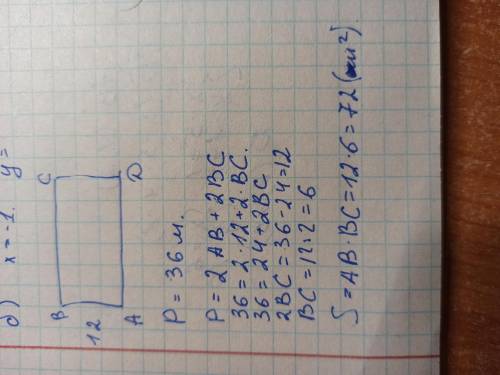 д) x = -1. y =
B C
12
A D
P = 36 м.
P = 2 AB + 2 BC
36 = 2 · 12 + 2 · BC.
36 = 24 + 2BC
2BC = 36 - 24 = 12
BC = 12 : 2 = 6
S = AB · BC = 12 · 6 = 72 (м²)